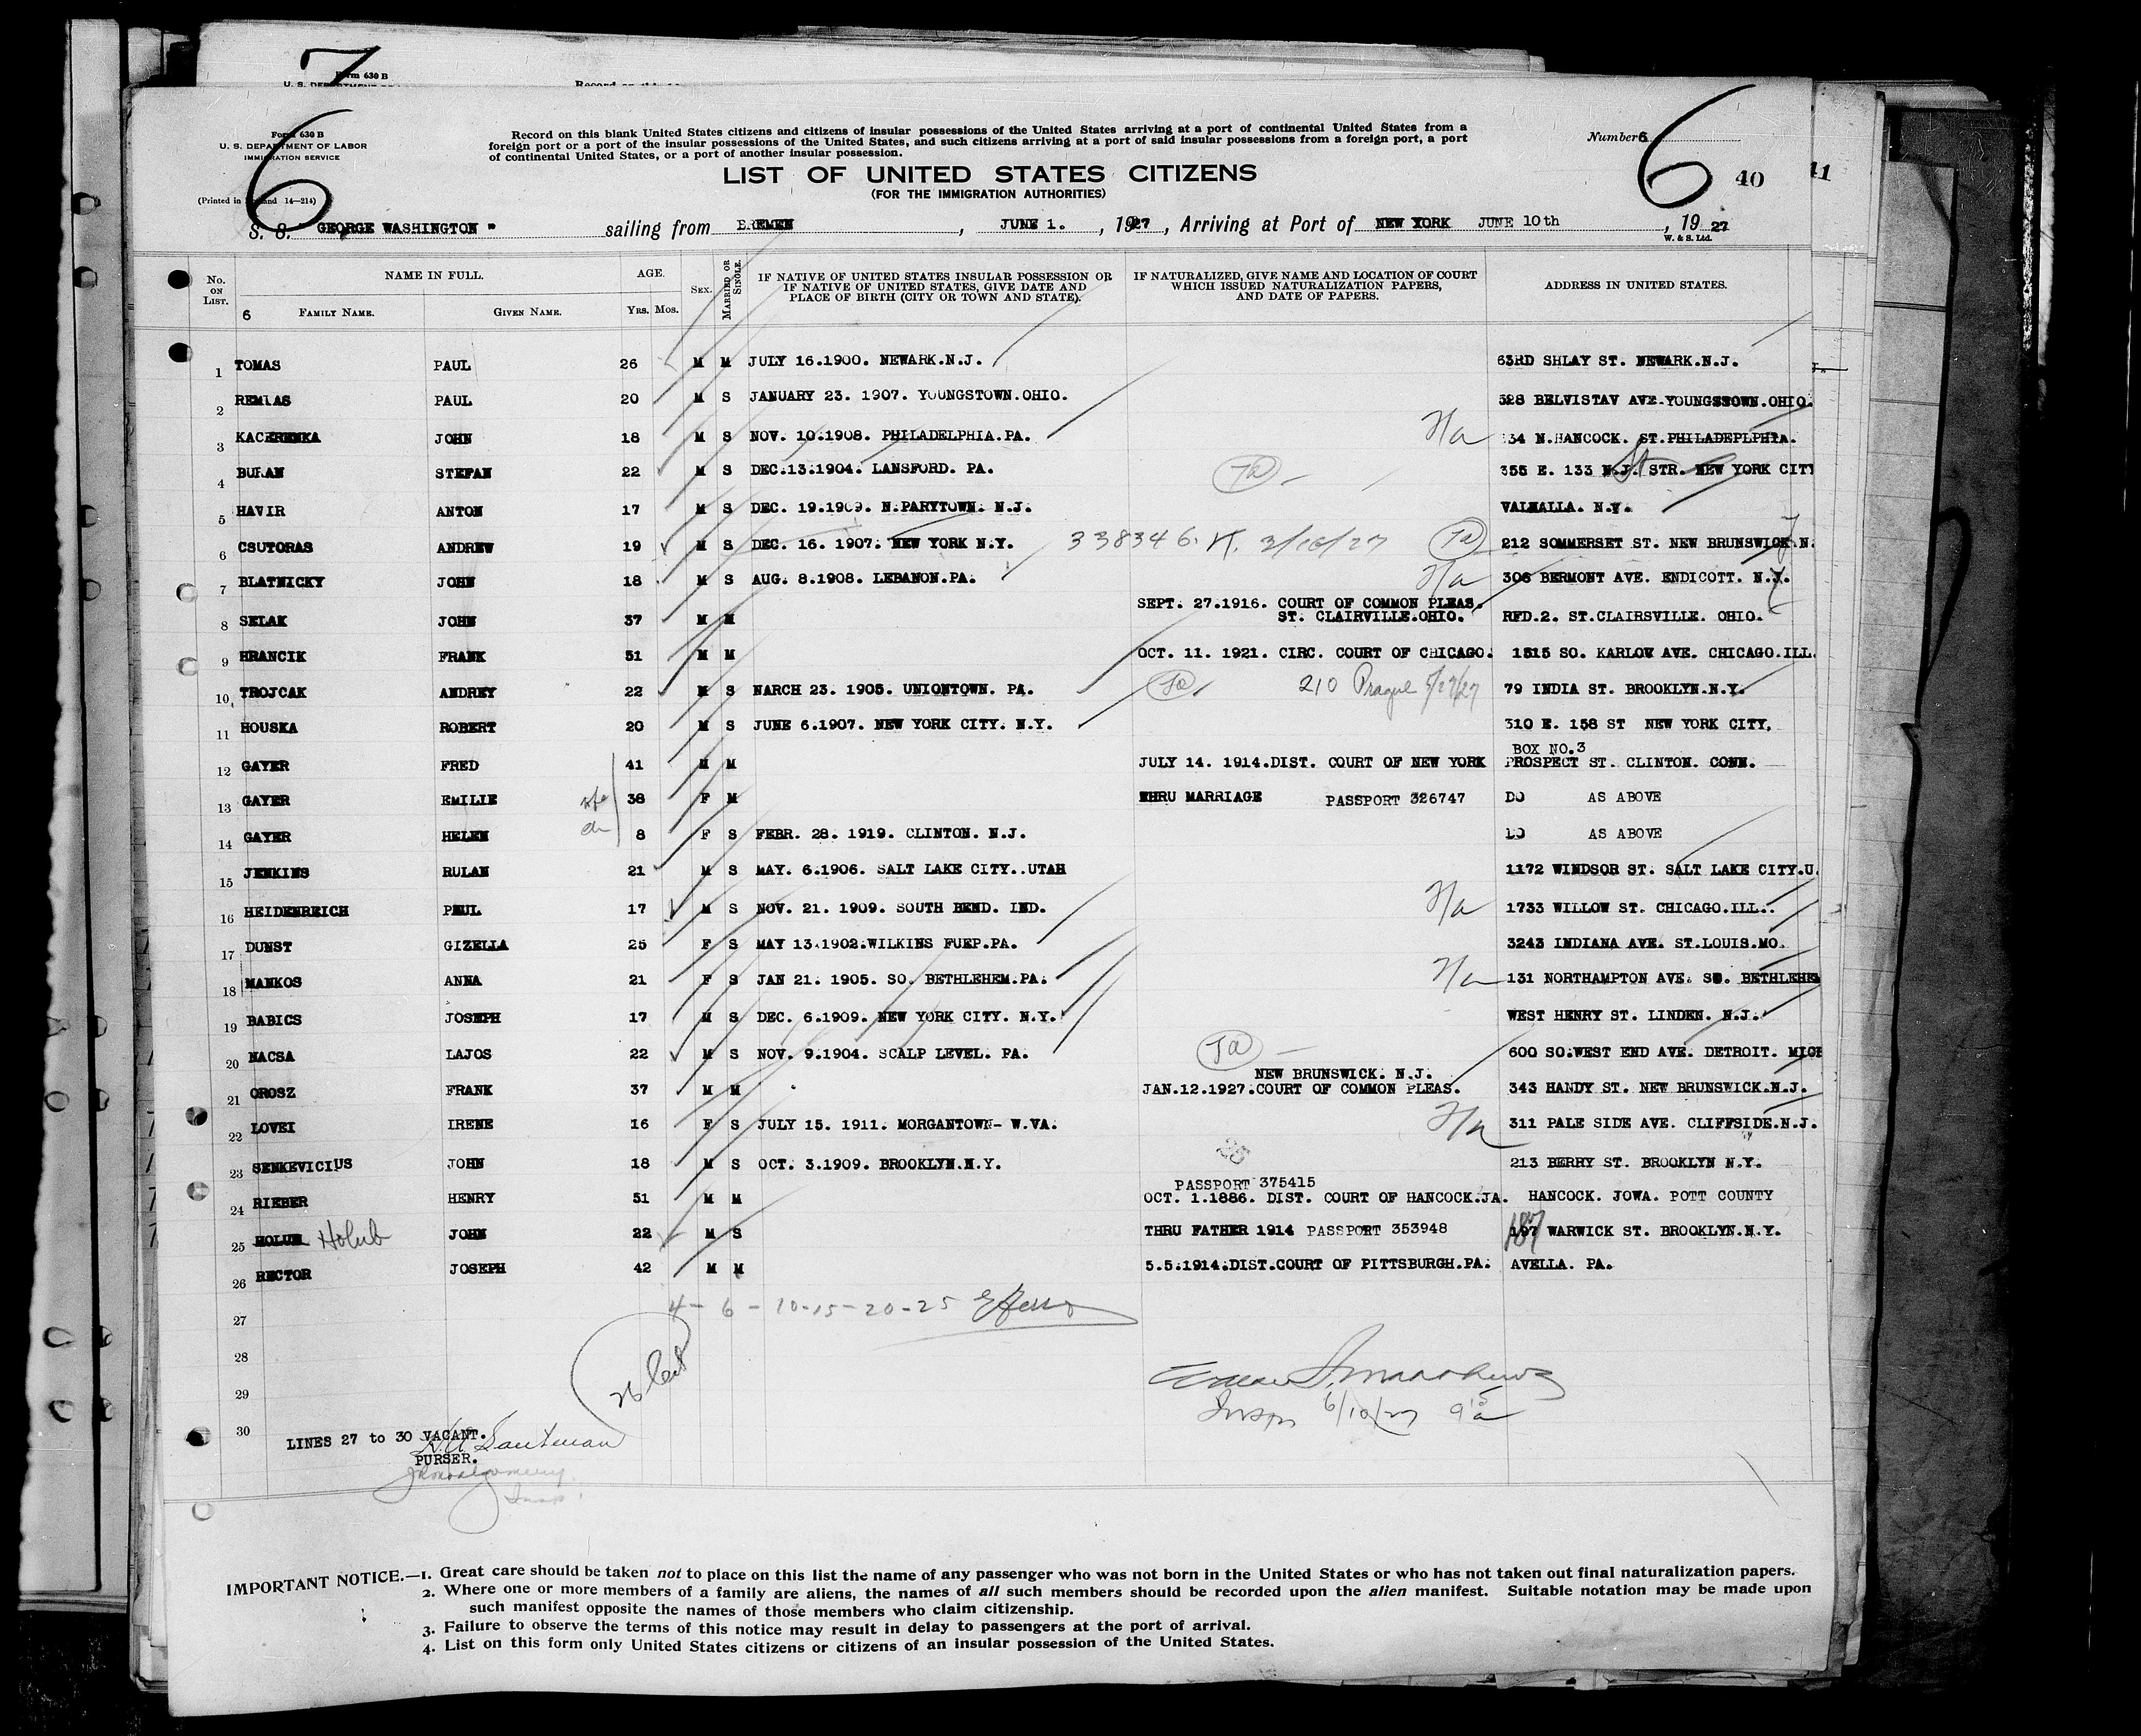 7
Form 630 B
6
Form 630 B
U. S. DEPARTMENT OF LABOR
IMMIGRATION SERVICE
(Printed in England 14—214)
Record on this blank United States citizens and citizens of insular possessions of the United States arriving at a port of continental United States from a
foreign port or a port of the insular possessions of the United States, and such citizens arriving at a port of said insular possessions from a foreign port, a port
of continental United States, or a port of another insular possession.
Number 6
6
40
41
LIST OF UNITED STATES CITIZENS
(FOR THE IMMIGRATION AUTHORITIES)
S. S. GEORGE WASHINGTON " sailing from BREMEN , JUNE 1. , 1927 , Arriving at Port of NEW YORK JUNE 10th , 1927
W. & S. Ltd.
No. ON LIST. NAME IN FULL. AGE. SEX. MARRIED OR SINGLE. IF NATIVE OF UNITED STATES INSULAR POSSESSION OR IF NATIVE OF UNITED STATES, GIVE DATE AND PLACE OF BIRTH (CITY OR TOWN AND STATE). IF NATURALIZED, GIVE NAME AND LOCATION OF COURT WHICH ISSUED NATURALIZATION PAPERS, AND DATE OF PAPERS. ADDRESS IN UNITED STATES.
6 FAMILY NAME. GIVEN NAME. YRS. MOS.
1 TOMAS PAUL 26 M M JULY 16.1900. NEWARK.N.J. 63RD SHLAY ST. NEWARK.N.J.
2 REMLAS PAUL 20 M S JANUARY 23. 1907. YOUNGSTOWN.OHIO. 528 BELVISTAV AVE.YOUNGSTOWN.OHIO.
3 KACERENKA JOHN 18 M S NOV. 10.1908. PHILADELPHIA.PA. 34 N.HANCOCK. ST.PHILADEPLPHIA.
4 BURAN STEFAN 22 M S DEC.13.1904. LANSFORD. PA. 355 E. 133 N.J. St STR. NEW YORK CITY
5 HAVIR ANTON 17 M S DEC. 19.1909. N.PARYTOWN. N.J. VALHALLA. N.Y.
6 CSUTORAS ANDREW 19 M S DEC. 16. 1907. NEW YORK N.Y. 338346. 3/10/27 212 SOMMERSET ST. NEW BRUNSWICK.N. J
7 BLATNICKY JOHN 18 M S AUG. 8.1908. LEBANON.PA. 306 BERMONT AVE. ENDICOTT. N.Y.
8 SELAK JOHN 37 M M SEPT. 27.1916. COURT OF COMMON PLEAS. ST. CLAIRVILLE.OHIO. RFD.2. ST.CLAIRSVILLE. OHIO.
9 HRANCIK FRANK 51 M M OCT. 11. 1921. CIRC. COURT OF CHICAGO. 1515 SO. KARLOV AVE. CHICAGO.ILL.
10 TROJCAK ANDREY 22 M S NARCH 23. 1905. UNIONTOWN. PA. 210 Prague 5/27/27 79 INDIA ST. BROOKLYN.N.Y.
11 HOUSKA ROBERT 20 M S JUNE 6.1907. NEW YORK CITY. N.Y. 310 E. 158 ST NEW YORK CITY,
12 GAYER FRED 41 M M JULY 14. 1914.DIST. COURT OF NEW YORK BOX NO.3 PROSPECT ST. CLINTON. CONN.
13 GAYER EMILIE wfe 38 F M THRU MARRIAGE PASSPORT 326747 DO AS ABOVE
14 GAYER HELEN ch 8 F S FEBR. 28. 1919. CLINTON. N.J. DO AS ABOVE
15 JENKINS RULAN 21 M S MAY. 6.1906. SALT LAKE CITY..UTAH 1172 WINDSOR ST. SALT LAKE CITY.U.
16 HEIDENREICH PAUL 17 M S NOV. 21. 1909. SOUTH BEND. IND. 1733 WILLOW ST. CHICAGO.ILL..
17 DUNST GIZELLA 25 F S MAY 13.1902.WILKINS FUEP.PA. 3243 INDIANA AVE. ST.LOUIS.MO.
18 MANKOS ANNA 21 F S JAN 21. 1905. SO. BETHLEHEM.PA. 131 NORTHAMPTON AVE. SO. BETHLEHEM
19 BABICS JOSEPH 17 M S DEC. 6.1909. NEW YORK CITY. N.Y. WEST HENRY ST. LINDEN. N.J.
20 NACSA LAJOS 22 M S NOV. 9.1904. SCALP LEVEL. PA. 600 SO.WEST END AVE. DETROIT. MICH
21 OROSZ FRANK 37 M M NEW BRUNSWICK. N.J. JAN.12.1927.COURT OF COMMON PLEAS. 343 HANDY ST. NEW BRUNSWICK.N.J.
22 LOVEI IRENE 16 F S JULY 15. 1911. MORGANTOWN- W.VA. 311 PALE SIDE AVE. CLIFFSIDE.N.J.
23 SENKEVICIUS JOHN 18 M S OCT. 3.1909. BROOKLYN.N.Y. 213 BERRY ST. BROOKLYN N.Y.
24 RIEBER HENRY 51 M M PASSPORT 375415 OCT. 1.1886. DIST. COURT OF HANCOCK.JA. HANCOCK. JOWA. POTT COUNTY
25 HOLUM Holub JOHN 22 M S THRU FATHER 1914 PASSPORT 353948 187 WARWICK ST. BROOKLYN.N.Y.
26 RECTOR JOSEPH 42 M M 5.5.1914.DIST.COURT OF PITTSBURGH.PA. AVELLA. PA.
4 - 6 - 10-15-20-25
27
28
29
30
Insp 6/10/27
LINES 27 to 30 VACANT.
PURSER.
IMPORTANT NOTICE.—1. Great care should be taken not to place on this list the name of any passenger who was not born in the United States or who has not taken out final naturalization papers.
2. Where one or more members of a family are aliens, the names of all such members should be recorded upon the alien manifest. Suitable notation may be made upon
such manifest opposite the names of those members who claim citizenship.
3. Failure to observe the terms of this notice may result in delay to passengers at the port of arrival.
4. List on this form only United States citizens or citizens of an insular possession of the United States.